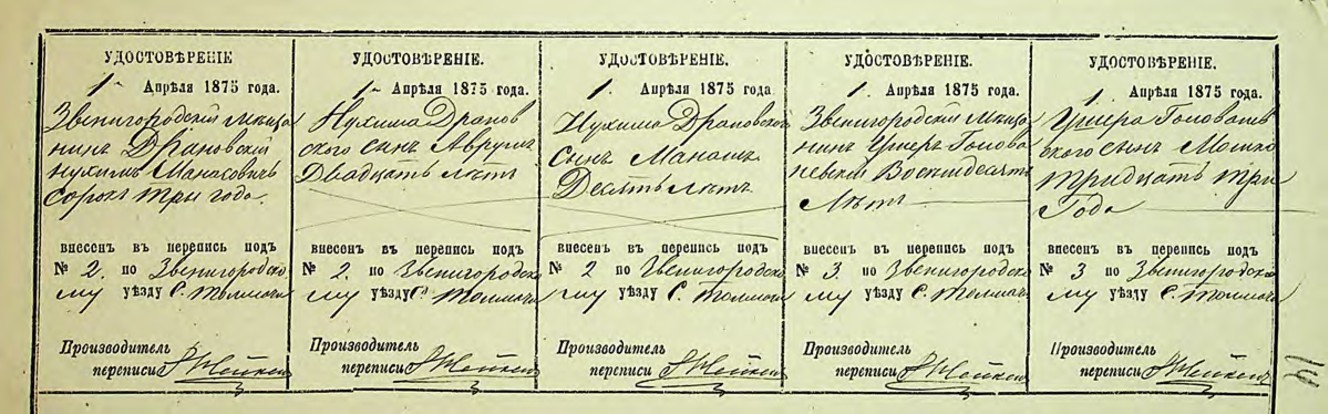 УДОСТОВѢРЕНІЕ
1 Апрѣля 1875 года.
Звенигородскій мѣща
нинъ Драновскій
Нухимъ Манасовичъ
сорокъ три года.
внесенъ въ перепись подъ
№ 2. по Звенигородско
му уѣзду С. Толмач
Производитель
переписи
УДОСТОВѢРЕНІЕ.
1 Апрѣля 1875 года.
Нухима Дранов
ского сынъ Аврумъ
Двадцать лѣтъ
внесенъ въ перепись подъ
№ 2. по Звенигородско
му уѣзду С. Толмач
Производитель
переписи
УДОСТОВѢРЕНІЕ.
1. Апрѣля 1875 года
Нухима Драновского
сынъ Манашъ
Десять лѣтъ
внесенъ въ перепись подъ
№ 2 по Звенигородско
му уѣзду С. Толмач
Производитель
переписи
УДОСТОВѢРЕНІЕ.
1. Апрѣля 1875 года.
Звенигородскій мѣща
нинъ Ушеръ Голова
невскій Восемьдесятъ
лѣтъ
внесенъ въ перепись подъ
№ 3. по Звенигородско
му уѣзду С. Толмач
Производитель
переписи
УДОСТОВѢРЕНІЕ.
1. Апрѣля 1875 года.
Ушера Головане
вского сынъ Мошко
тридцать три
Года
внесенъ въ перепись подъ
№ 3 по Звенигородско
му уѣзду С. Толмач
Производитель
переписи